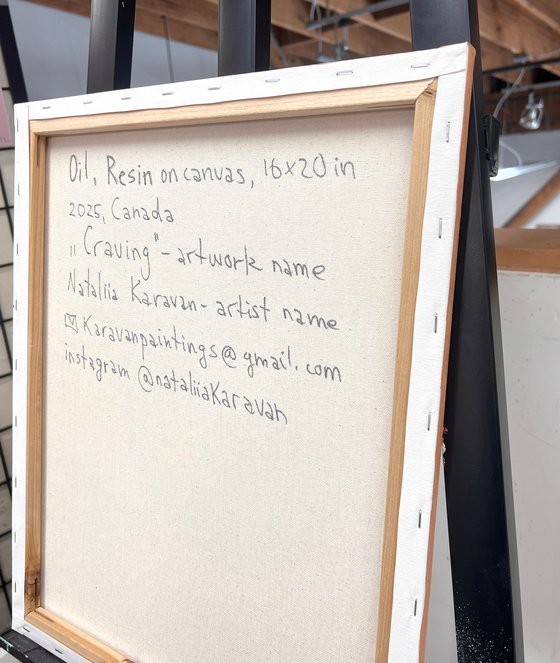 Oil, Resin on canvas, 16x20 in
2025, Canada
„Craving" - artwork name
Nataliia Karavan - artist name
✉ Karavanpaintings@gmail.com
instagram @nataliiaKaravan